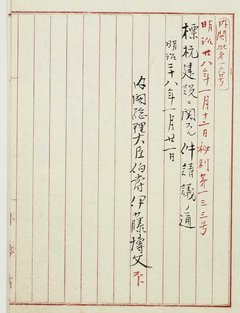 内閣批第一六号
明治廿八年一月十二日秘別第一三三号
標杭建設ニ関スル件請議ノ通
明治二十八年一月廿一日
内閣総理大臣伯爵伊藤博文